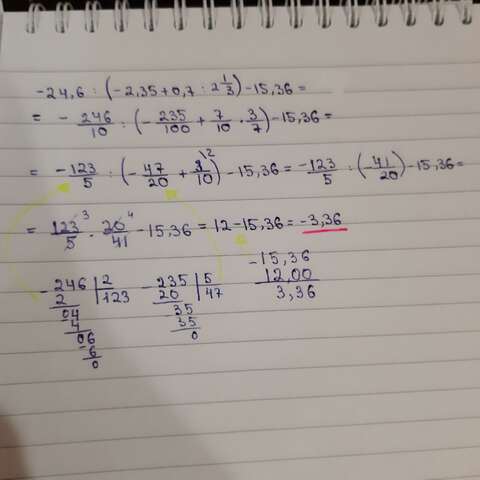 -24,6 : (-2,35+0,7 : 2 1/3) -15,36 =
= - 246/10 : (- 235/100 + 7/10 · 3/7) -15,36 =
= -123/5 : (- 47/20 + 3/10 \2) - 15,36 = -123/5 : (- 41/20) -15,36 =
= 123 3/5 · 20 4/41 - 15,36 = 12 - 15,36 = -3,36
- 246 | 2
2 | 123
04
4
06
6
0
- 235 | 5
20 | 47
35
35
0
- 15,36
12,00
3,36